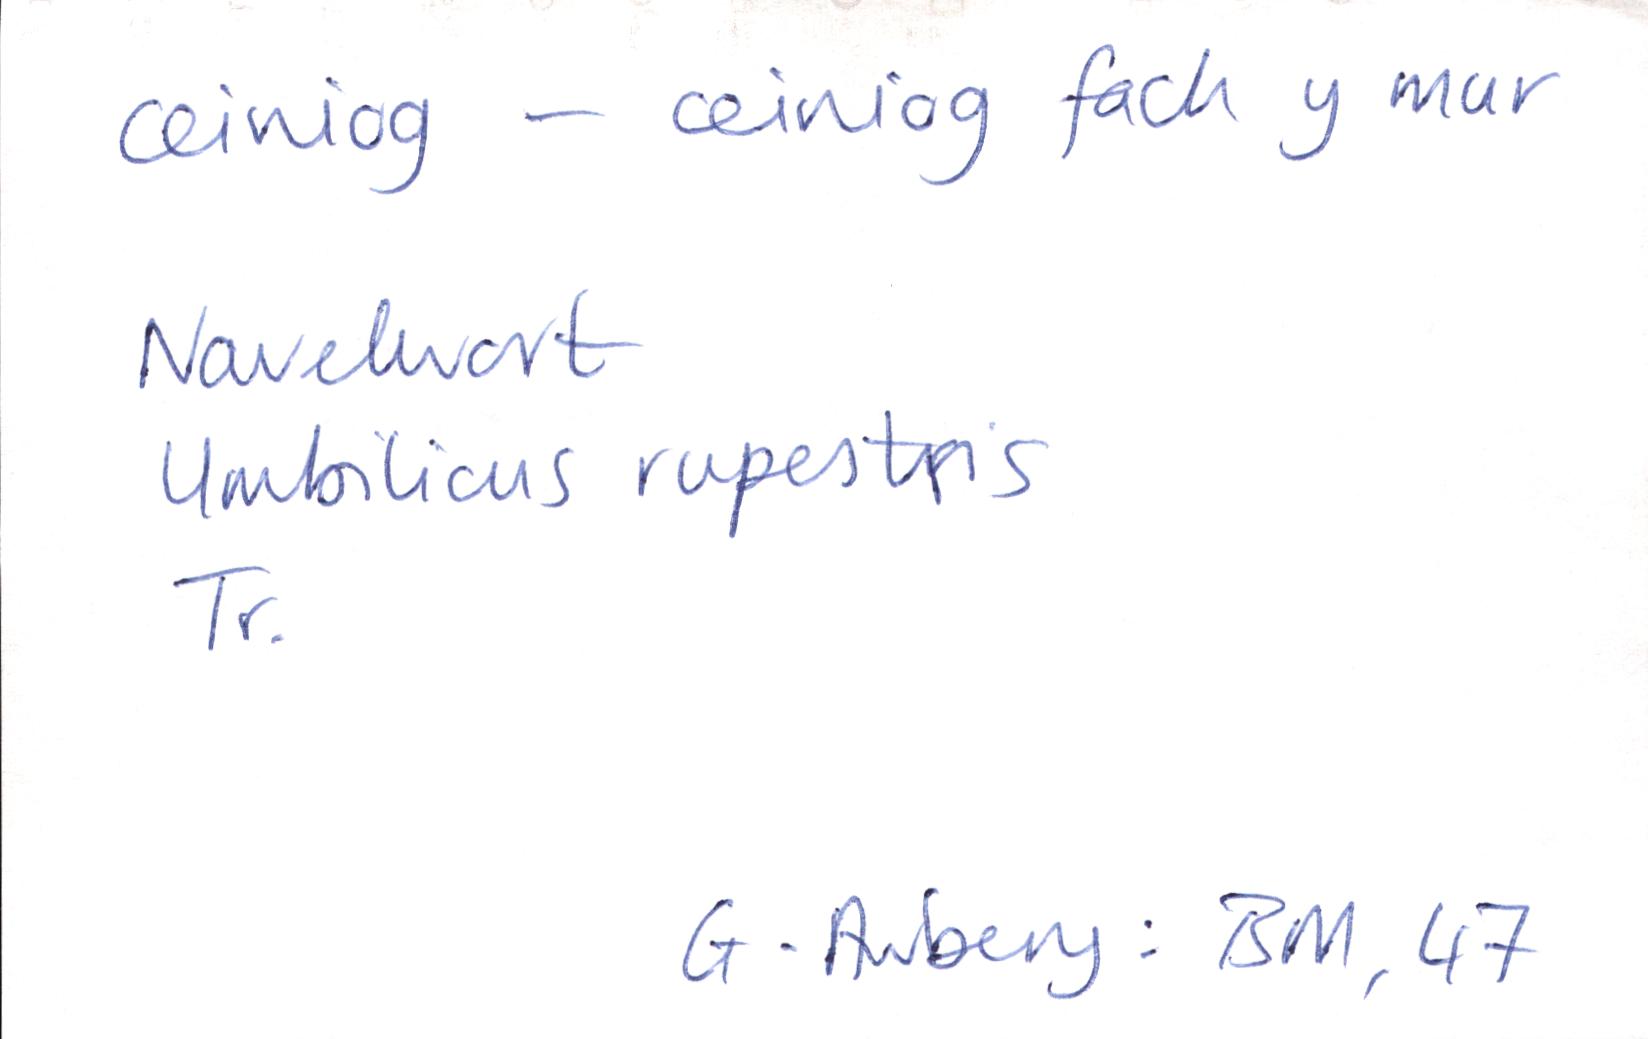 ceiniog – ceiniog fach y mur
Navelwort
Umbilicus rupestris
Tr.
G. Awbery: BM, 47